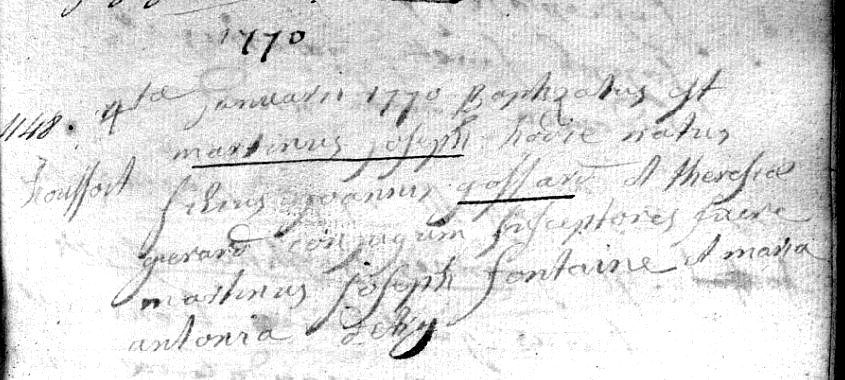 1770
4ta Januarii 1770 Baptizatus est
148. martinus joseph hodie natus
filius joannis gossard et theresiæ
gerard conjugum susceptores fuere
martinus joseph fontaine et maria
antonia